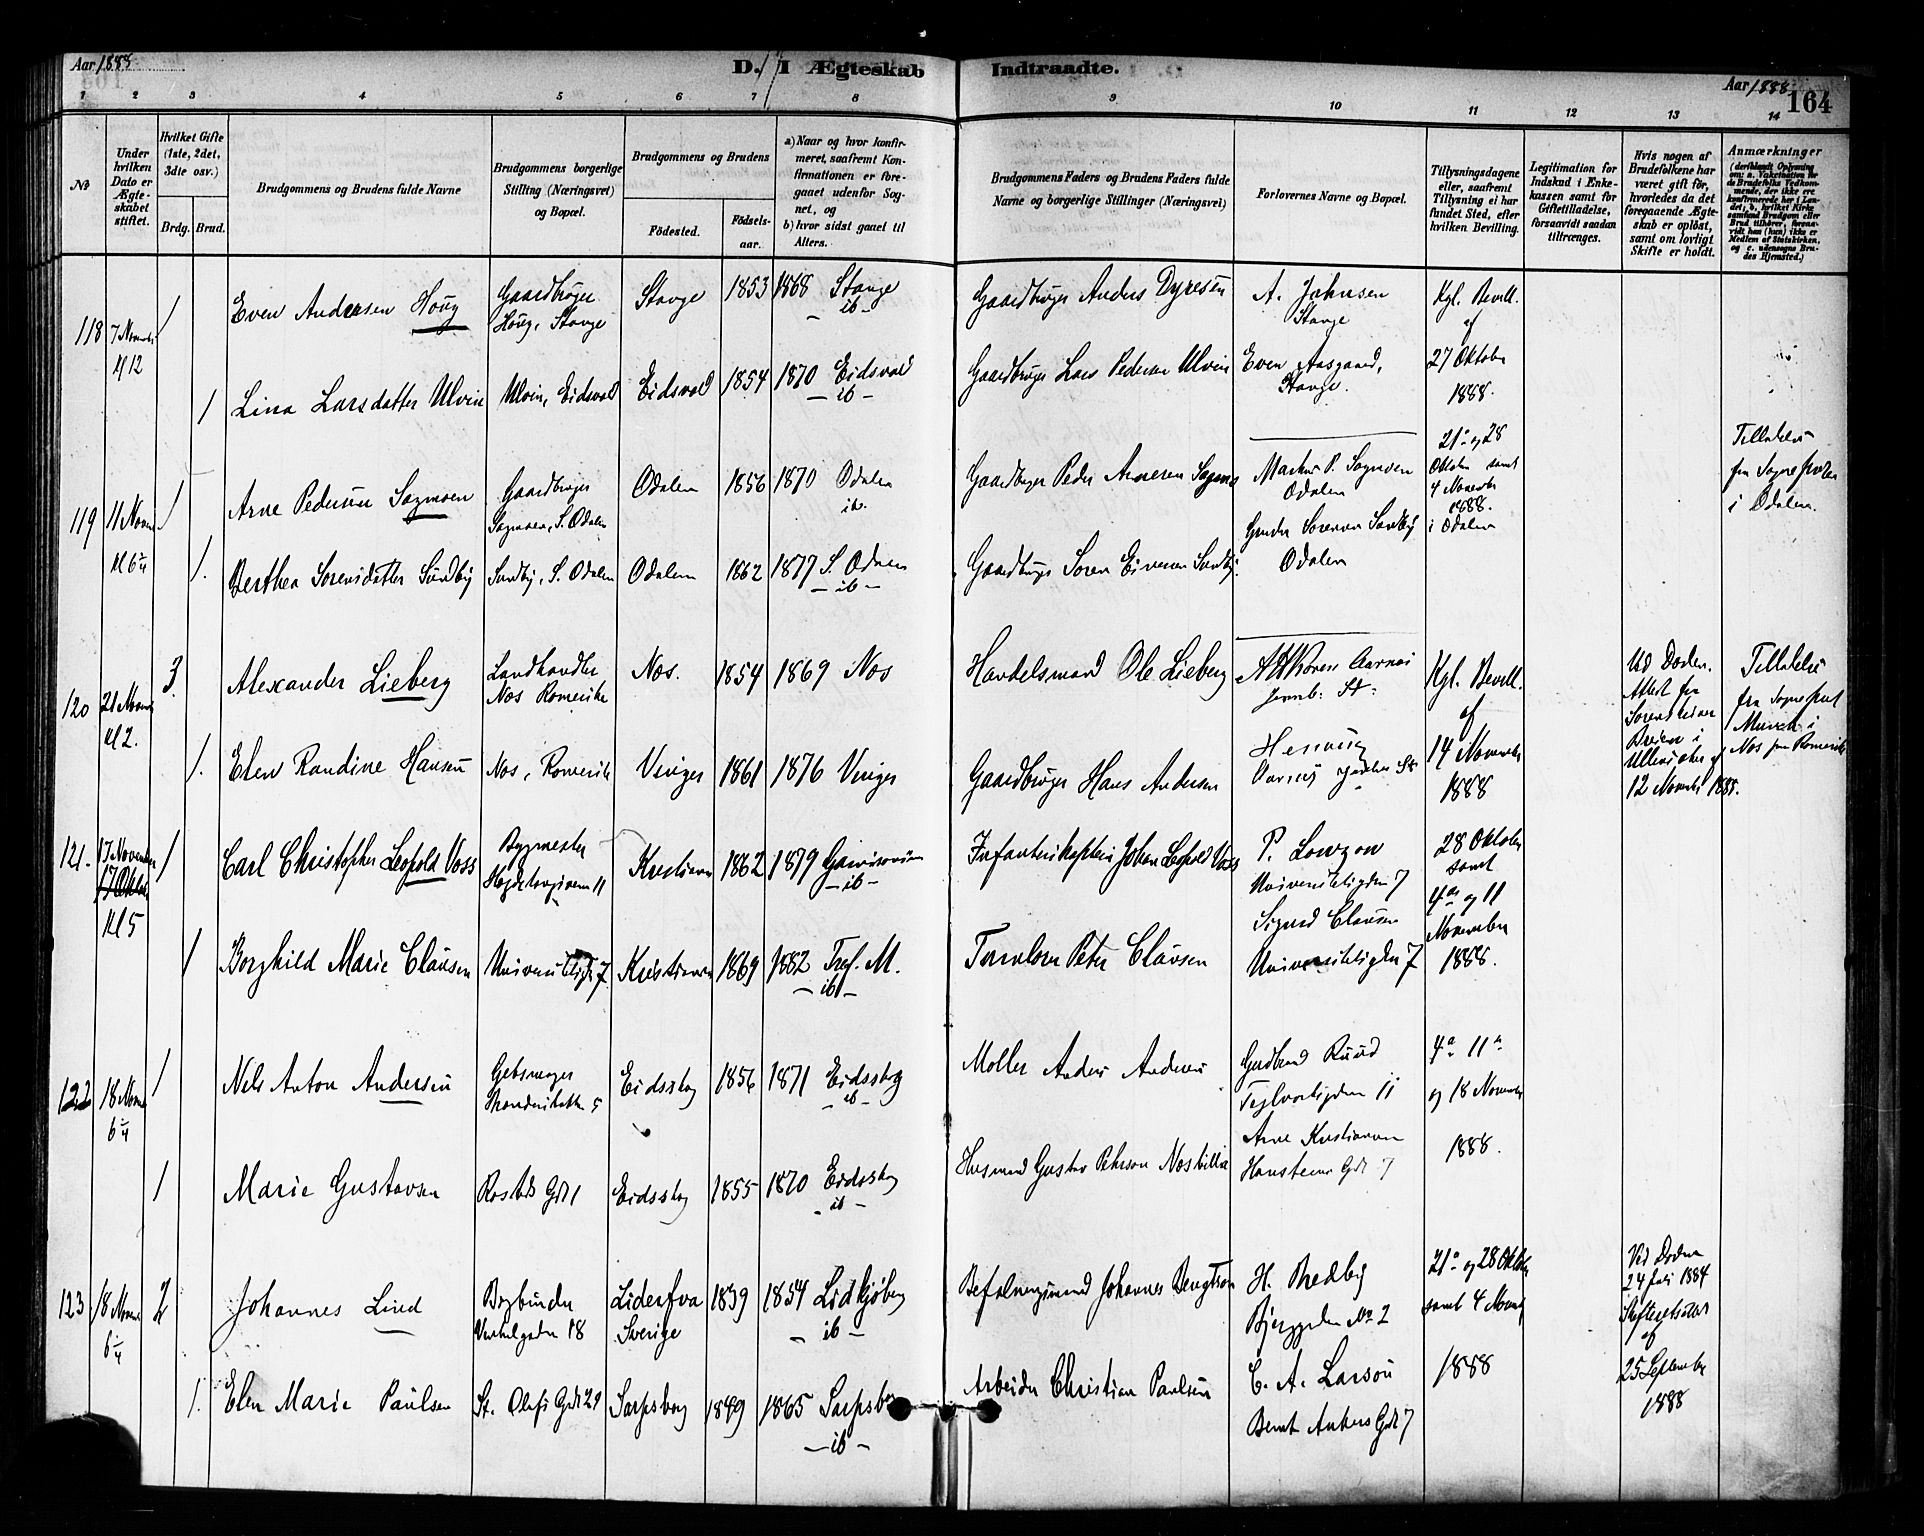 Aar 1888
D. I Ægteskab Indtraadte.
Aar 1888
164
1 2 3 4 5 6 7 8 9 10 11 12 13 14
No
Under hvilken Dato er Ægteskabet stiftet.
Hvilket Gifte (1ste, 2det, 3die osv.)
Brdg. Brud.
Brudgommens og Brudens fulde Navne
Brudgommens borgerlige Stilling (Næringsvei) og Bopæl.
Brudgommens og Brudens
Fødested.
Fødselsaar.
a) Naar og hvor konfirmeret, saafremt Konfirmationen er foregaaet udenfor Sognet, og
b) hvor sidst gaaet til Alters.
Brudgommens Faders og Brudens Faders fulde Navne og borgerlige Stillinger (Næringsvei)
Forlovernes Navne og Bopæl.
Tillysningsdagene eller, saafremt Tillysning ei har fundet Sted, efter hvilken Bevilling.
Legitimation for Indskud i Enkekassen samt for Giftetilladelse, forsaavidt saadan tiltrænges.
Hvis nogen af Brudefolkene har været gift før, hvorledes da det foregaaende Ægteskab er opløst, samt om lovligt Skifte er holdt.
Anmærkninger
(deriblandt Oplysning om: a. Vakcination for de Brudefolks Vedkommende, der ikke ere konfirmerede her i Landet; b. hvilket Kirkesamfund Brudgom eller Brud tilhører, forsaavidt han (hun) ikke er Medlem af Statskirken, og c. udensogns Brudes Hjemsted.)
118 7 Novemb. 1 Even Andersen Houg Gaardbruger Stange 1853 1868 Stange Gaardbruger Anders Dyresen A. Johnsen Kgl. Bevill.
Houg, Stange - ib - Stange af
Kl 12 Gaardbruger Lars Pedersen Ulvin Even Aasgaard, 27 Oktober
1 Lina Larsdatter Ulvin Ulvin, Eidsvold Eidsvold 1854 1870 Eidsvold Stange. 1888.
- ib -
119 11 Novem 1 Arne Pedersen Sagmoen Gaardbruger Odalen 1856 1870 Odalen Gaardbruger Peder Arnesen Markus P. Sagmoen 21 og 28 Tilladelse
Sagmoen, S. Odalen ib. Odalen Oktober samt fra Sognepresten
4 November i Odalen.
1888.
Kl 6 1. Berthea Sorensdatter Sundby Sundby, S. Odalen Odalen 1862 1877 S. Odalen Gaardbruger Soren Sundby Sorensen Sundby i Odalen
- ib - Odalen
120 21 Novemb 3. Alexander Lieberg Landhandler Nes. 1854 1869 Nes Handelsmand Ole Lieberg Aarnes Kgl. Bevill. Ved Døden. Tilladelse
Nes Romerike Jernb. St. af Attest fra fra Sogneprest
Kl 2. 14 November i
1. Elen Randine Hansen Nes, Romerike Vinger 1861 1876 Vinger Gaardbruger Hans Andersen 1888 Nes paa Romerike
12 Novemb 1888.
121. 17 November 1 Carl Christopher Leopold Voss Bygmester Kristiania 1862 1879 Garnisonen Infanterikaptein Johan Leopold Voss P. Lowzow 28 Oktober
17 Oktober Hegdehaugsveien 11 - ib - Universitetsgaden 7 samt
Kl 5 Sigurd Clausen 4de og 11
1 Borghild Marie Clausen Universitetsgd 7 Kristiania 1869 1882 Tref. M. Peter Clausen Universitetsgaden 7 November
- ib - 1888.
122 18 Novem 1 Nils Anton Andersen Eidsskog 1856 1871 Eidsskog Møller Anders Andersen Gudbrand Ruud 4de 11te
6 - ib - Teglverksgaden 11 og 18 November
Husmand Gustav Arne Kristiansen 1888.
1 Marie Gustavsen Rosteds Gd 1 Eidsskog 1855 1870 Eidsskog Hansteens Gd 7
- ib -
123 18 Novem 2 Johannes Lind Bogbinder 1839 1854 Lidkjøbing Befalingsmand Johannes Bengtson H. Bredby 21 og 28 Oktober Ved Døden
18 Sverige - ib - Bjerggaden No 2 samt 4 Novemb 24 Juli 1884
6 Skifteattest
af
1. Elen Marie Paulsen St. Olafs Gd 29 Sarpsborg 1849 1865 Sarpsborg Arbeider Christian Paulsen C. A. Larson 1888 25 September
- ib - Bernt Ankers Gd 7 1888